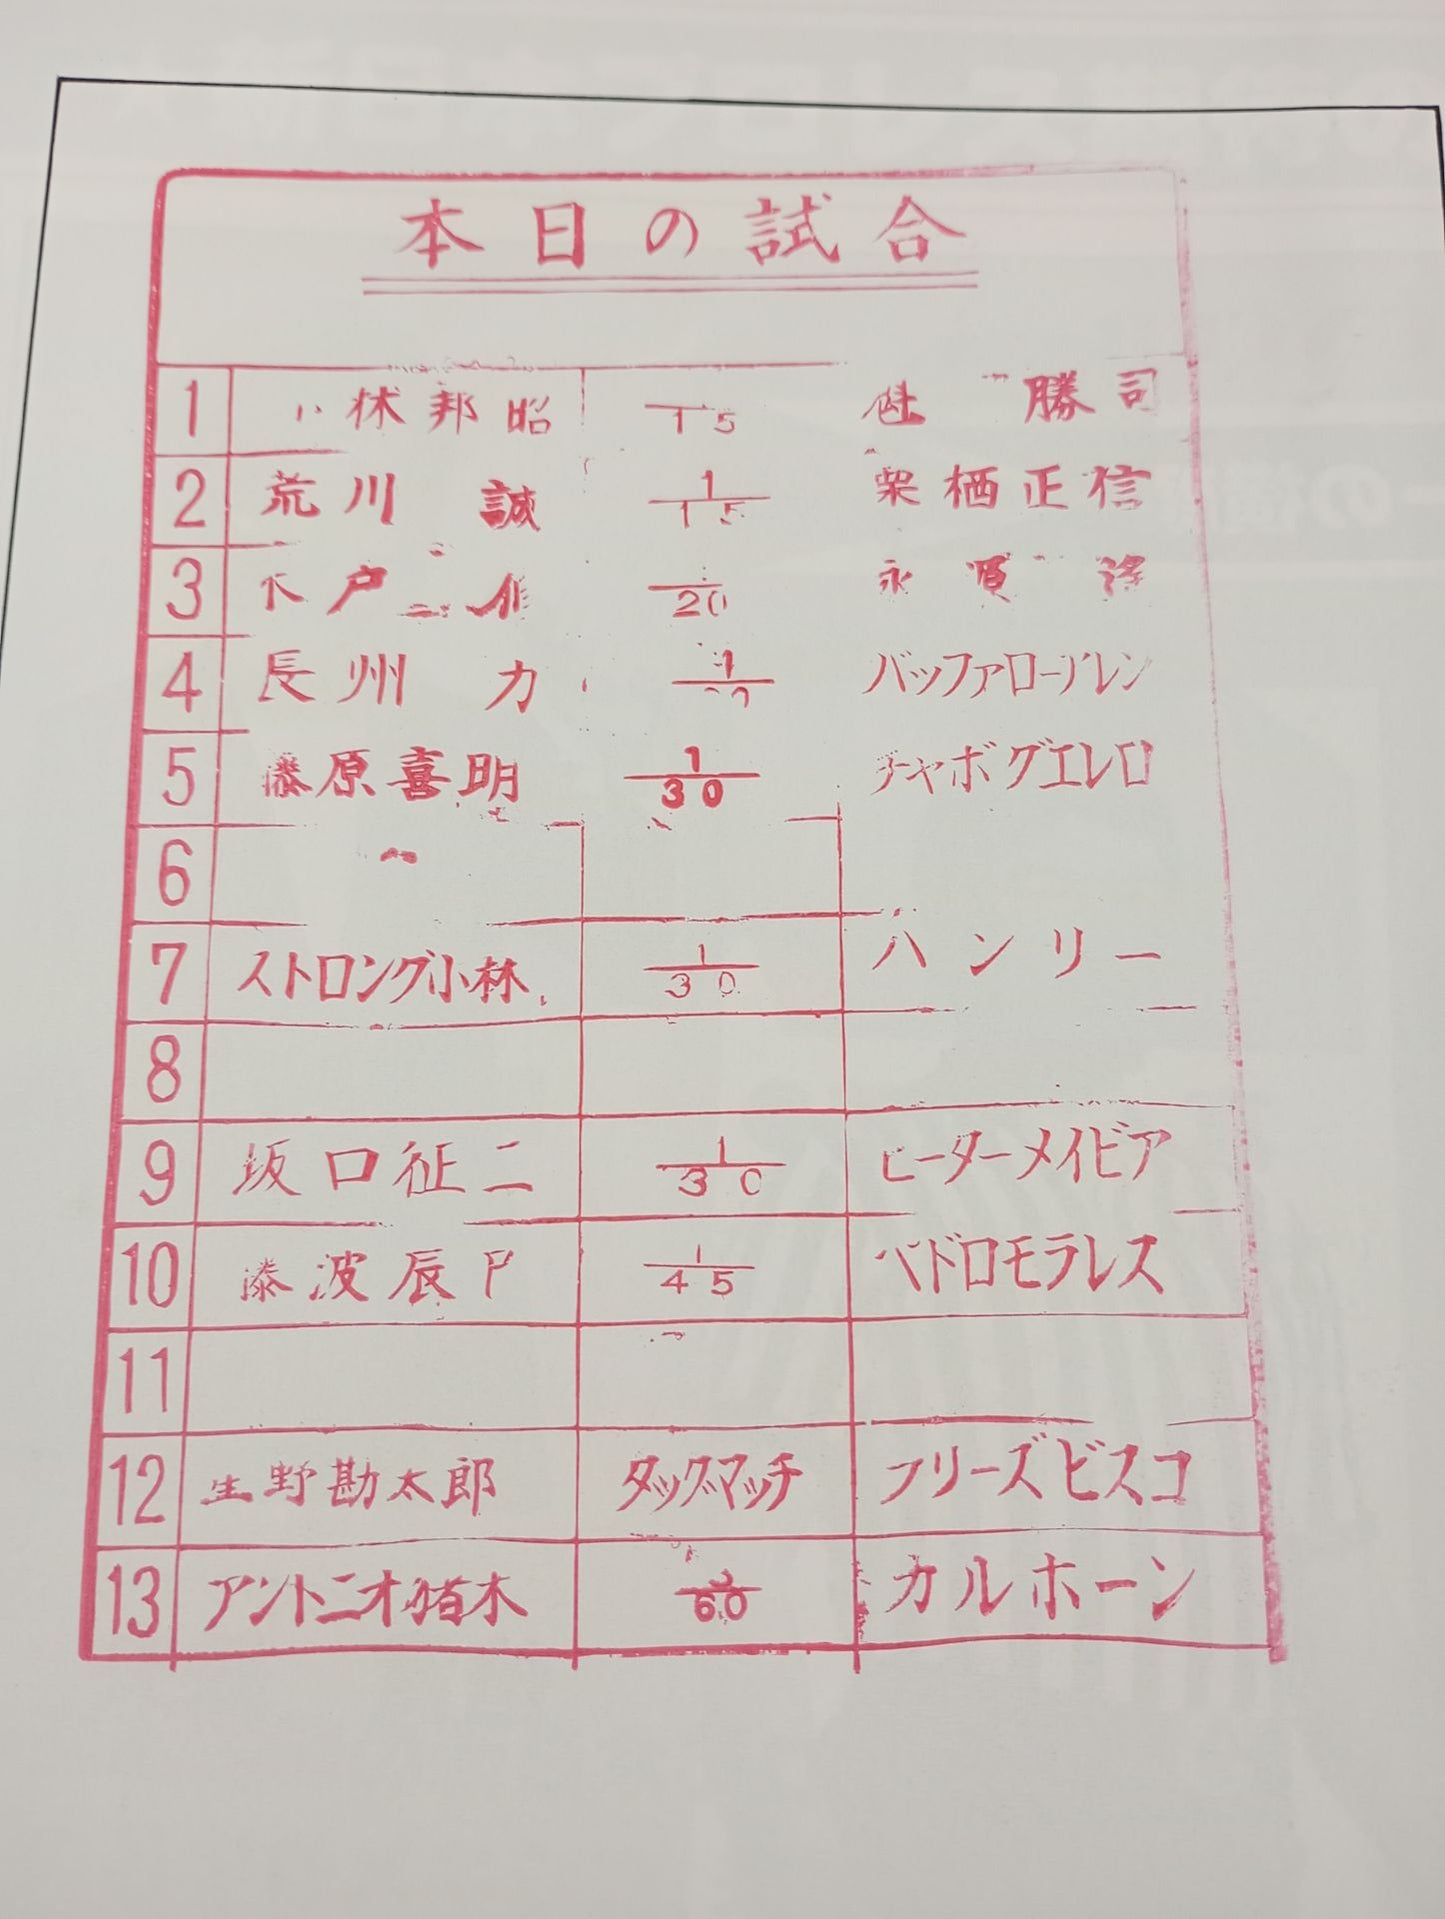 本日の試合
1 小林邦昭 15 勝司
2 荒川 誠 1 15 栗栖正信
3 木戸 修 20 永源
4 長州 力 1 バッファローアレン
5 藤原喜明 1 30 チャボグエレロ
6
7 ストロング小林 1 30 ハンリー
8
9 坂口征二 1 30 ピーターメイビア
10 藤波辰 1 45 ペドロモラレス
11
12 星野勘太郎 タッグマッチ フリーズビスコ
13 アントニオ猪木 60 カルホーン